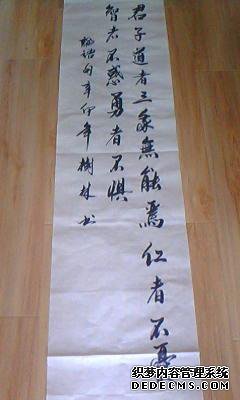 君子道者三我無能焉仁者不憂
智者不惑勇者不懼
論語句辛卯年樹林书
织梦内容管理系统
DEDECMS.COM